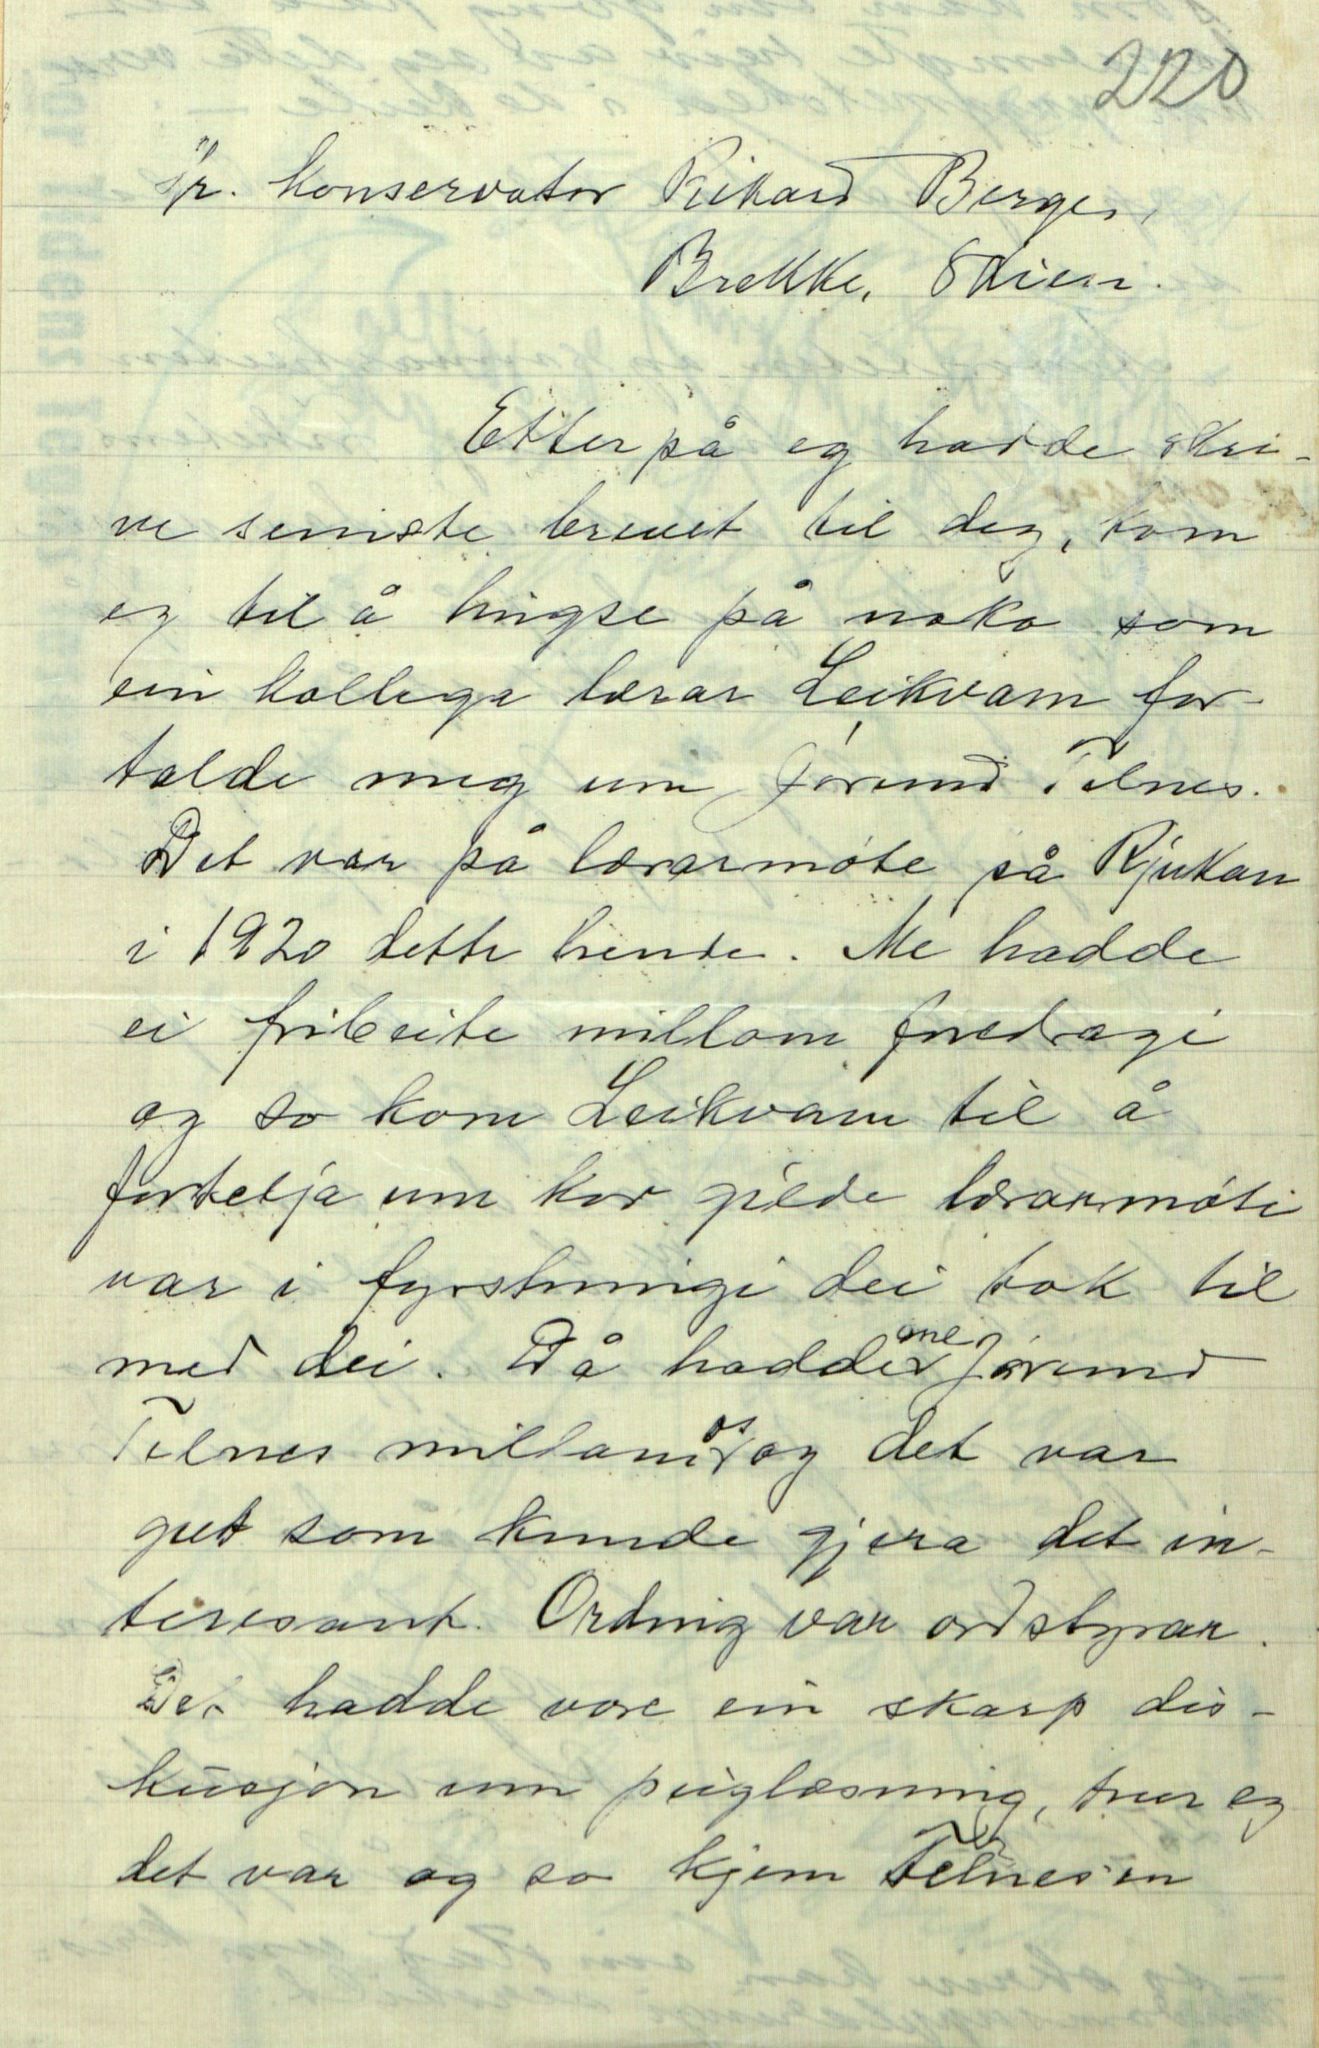 220
Hr. Konservator Rikard Berge,
Brekke, Skien.
Etter på eg hadde skri-
ve semste brevet til deg, kom
eg til å hugse på noko som
ein kollega lærar Leikvam for-
talde meg um Jørund Telnes.
Det var på lærarmøte på Rjukan
i 1920 dette hende. Me hadde
ei fribeite millom foredragi
og so kom Leikvam til å
fortelja um kor gilde lærarmøti
var i fyrstningi dei tok til
med dei. Då hadde me Jørund
Telnes millom os og det var
gut som kunde gjera det in-
teresant. Ording var ordstyrar.
Det hadde vore ein skarp dis-
kusjon um piiglæsning, trur eg
det var og so kjem Telnesen